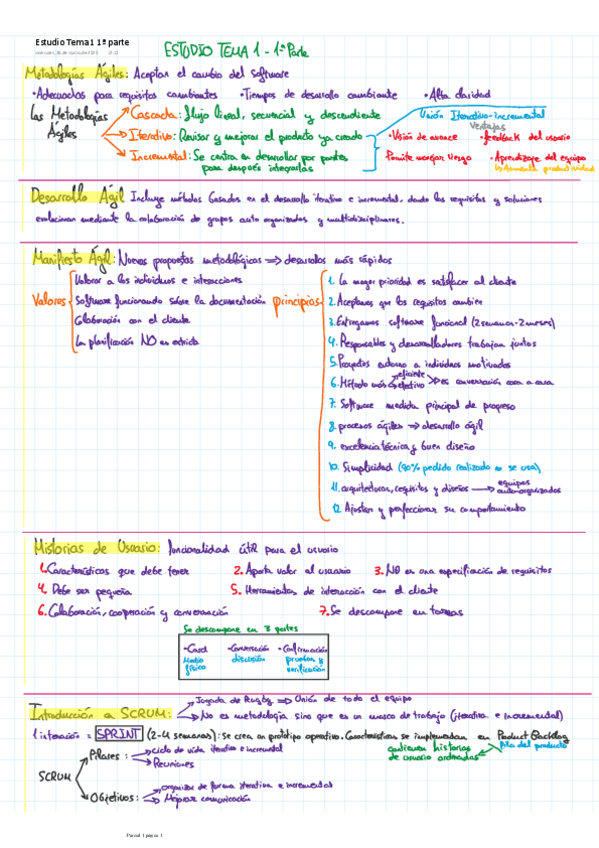 Estudio Tema1 1ª parte
ESTUDIO TEMA 1 - 1ª Parte
Metodologías Ágiles: Aceptan el cambio del software
•Adecuadas para requisitos cambiantes •Tiempos de desarrollo cambiante •Alta claridad
Las Metodologías Ágiles
Cascada: flujo lineal, secuencial y descendiente
Iterativo: Revisar y mejorar el producto ya creado
Incremental: Se centra en desarrollar por partes
para después integrarlas
Unión Iterativo-incremental
Ventajas
•Visión de avance •feedback del usuario
Permite manejar riesgo •Aprendizaje del equipo
Aumenta productividad
Desarrollo Ágil Incluye métodos basados en el desarrollo iterativo e incremental, donde los requisitos y soluciones
evolucionan mediante la colaboración de grupos auto organizados y multidisciplinares.
Manifiesto Ágil: Nuevas propuestas metodológicas ⇒ desarrollos más rápidos
Valores
Valorar a los individuos e interacciones
Software funcionando sobre la documentación
Colaboración con el cliente
La planificación NO es estricta
principios
1. La mayor prioridad es satisfacer al cliente
2. Aceptamos que los requisitos cambien
3. Entregamos software funcional (2 semanas-2 meses)
4. Responsables y desarrolladores trabajan juntos
5. Proyectos entorno a individuos motivados
6. Método más efectivo eficiente >> es conversación cara a cara
7. Software medida principal de progreso
8. procesos ágiles ⇒ desarrollo ágil
9. excelencia técnica y buen diseño
10. Simplicidad (90% pedido realizado no se usa)
11. arquitecturas, requisitos y diseños → equipos autoorganizados
12. Ajustan y perfeccionar su comportamiento
Historias de Usuario: funcionalidad útil para el usuario
1. Características que debe tener 2. Aporta valor al usuario 3. NO es una especificación de requisitos
4. Debe ser pequeña 5. Herramientas de interacción con el cliente
6. Colaboración, cooperación y conversación 7. Se descompone en tareas
Se descompone en 3 partes
•Card •Conversación •Confirmación
Medio físico discusión pruebas y verificación
Introducción a SCRUM:
Jugada de Rugby ⇒ Unión de todo el equipo
No es metodología sino que es un marco de trabajo (iterativo e incremental)
1 iteración = SPRINT (2-4 semanas): se crea un prototipo operativo. Características se implementan en Product Backlog
contienen historias de usuario ordenadas
Pila del producto
SCRUM
Pilares:
ciclo de vida iterativo e incremental
Reuniones
Objetivos:
organizar de forma iterativa e incremental
Mejorar comunicación
Parcial 1 página 1